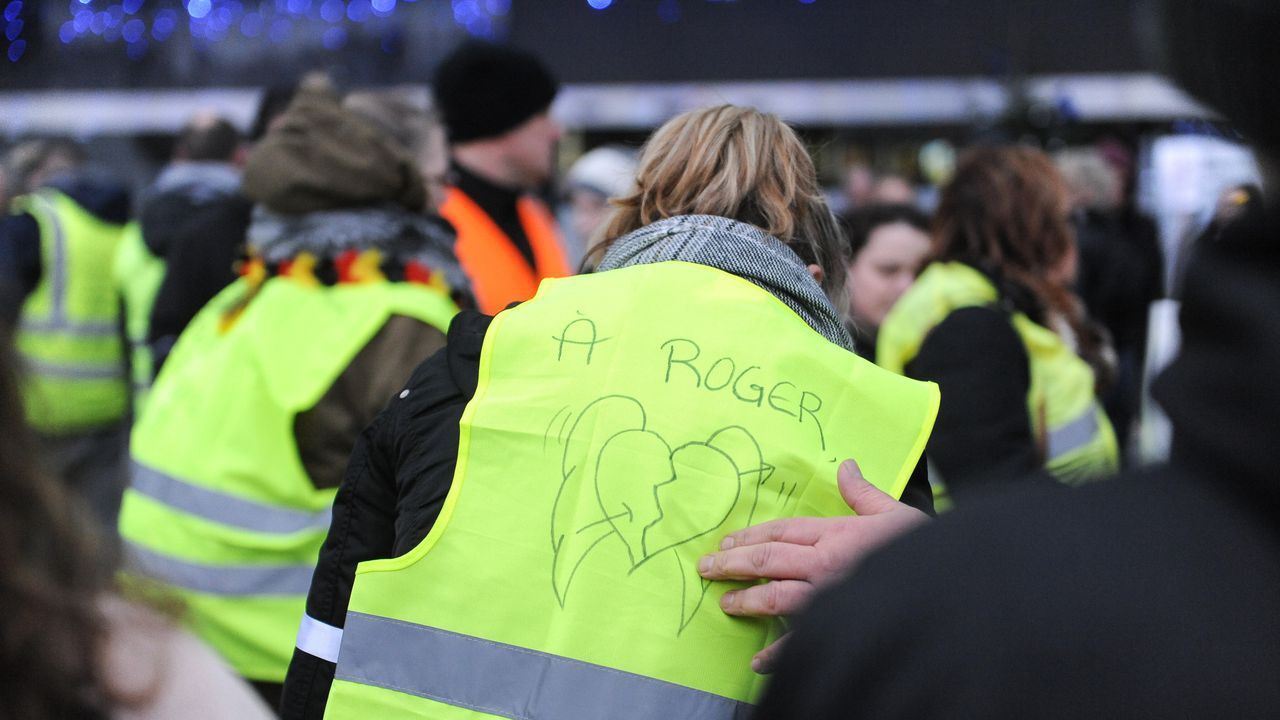 À ROGER,